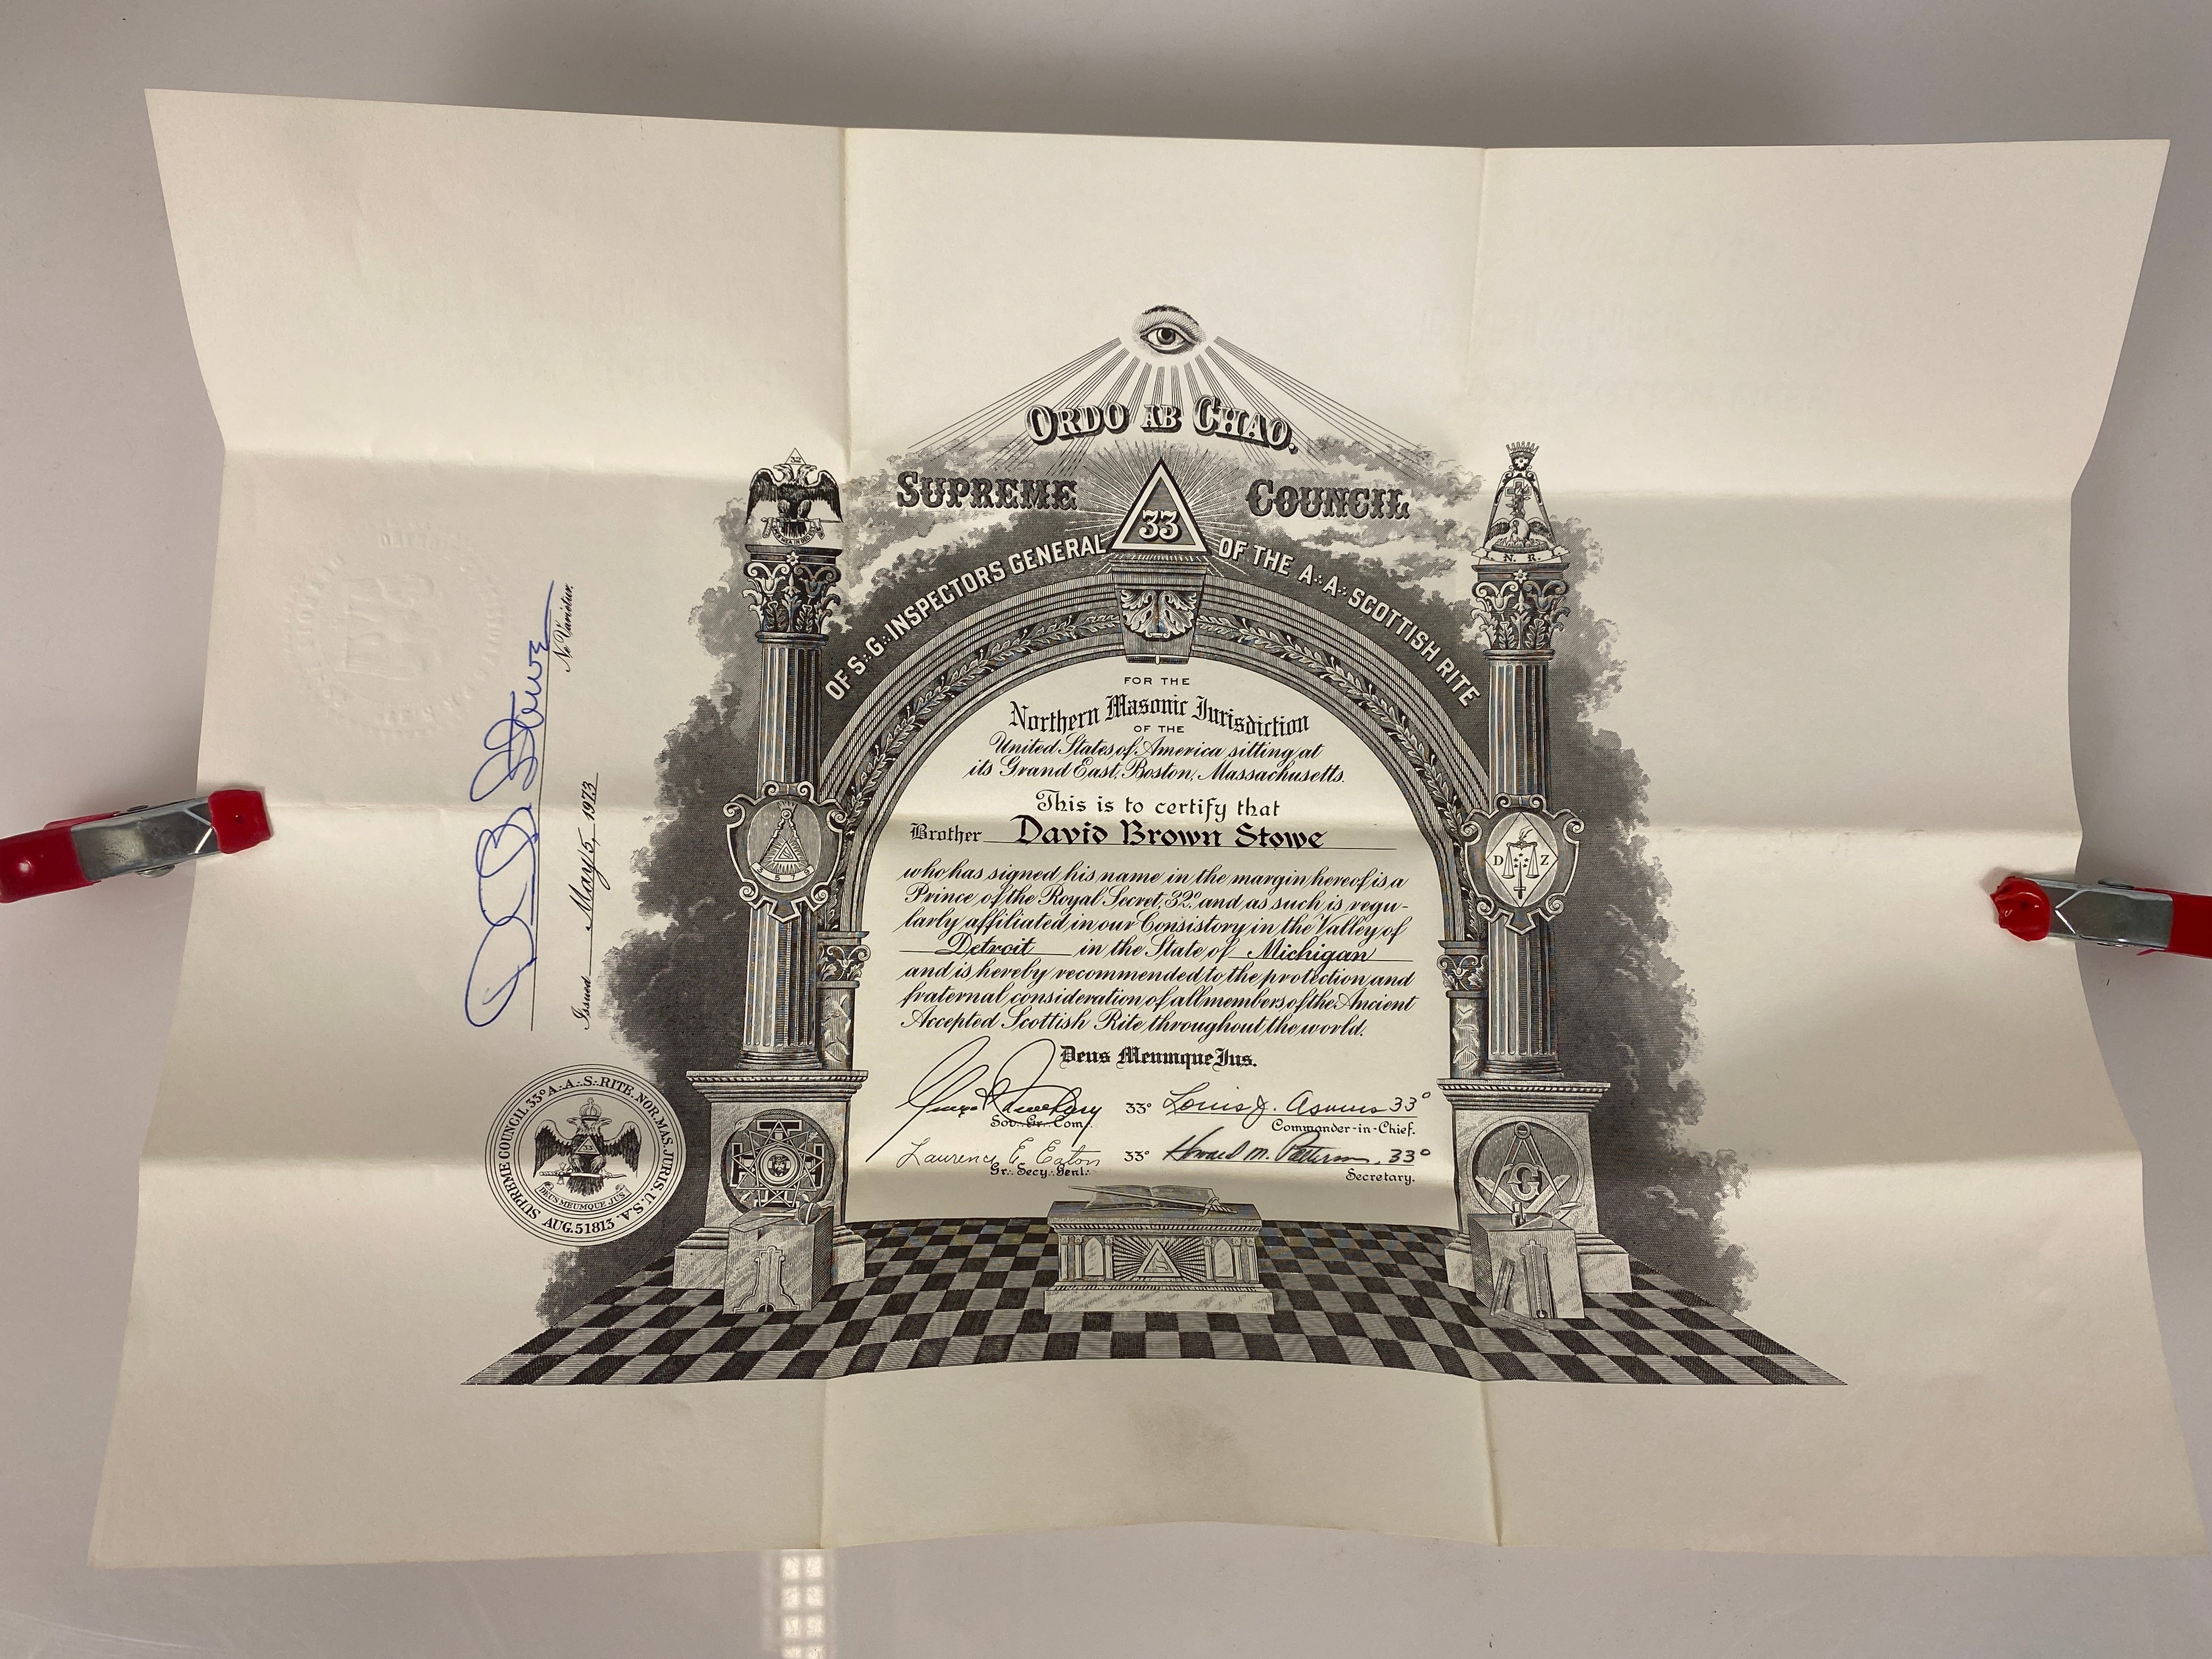 ORDO AB CHAO.
SUPREME 33 COUNCIL
OF S∴G∴INSPECTORS GENERAL OF THE A∴A∴SCOTTISH RITE
FOR THE
Northern Masonic Jurisdiction
OF THE
United States of America sitting at
its Grand East, Boston, Massachusetts.
This is to certify that
Brother David Brown Stowe
who has signed his name in the margin hereof is a
Prince of the Royal Secret, 32° and as such is regu-
larly affiliated in our Consistory in the Valley of
Detroit in the State of Michigan
and is hereby recommended to the protection and
fraternal consideration of all members of the Ancient
Accepted Scottish Rite throughout the world.
Deus Meumque Jus.
33° Louis J. Asmus 33°
Sov∴Gr∴Com∴ Commander-in-Chief.
Laurence E Eaton 33° Howard M. 33°
Gr∴Secy∴Genl∴ Secretary.
D B Stowe
Ne Varietur.
Issued May 5, 1973
SUPREME COUNCIL 33° A∴A∴S∴RITE. NOR. MAS. JURIS. U.S.A.
33
DEUS MEUMQUE JUS
AUG. 5 1813
32
I. N. R.
3 5 7 9
D Z
G